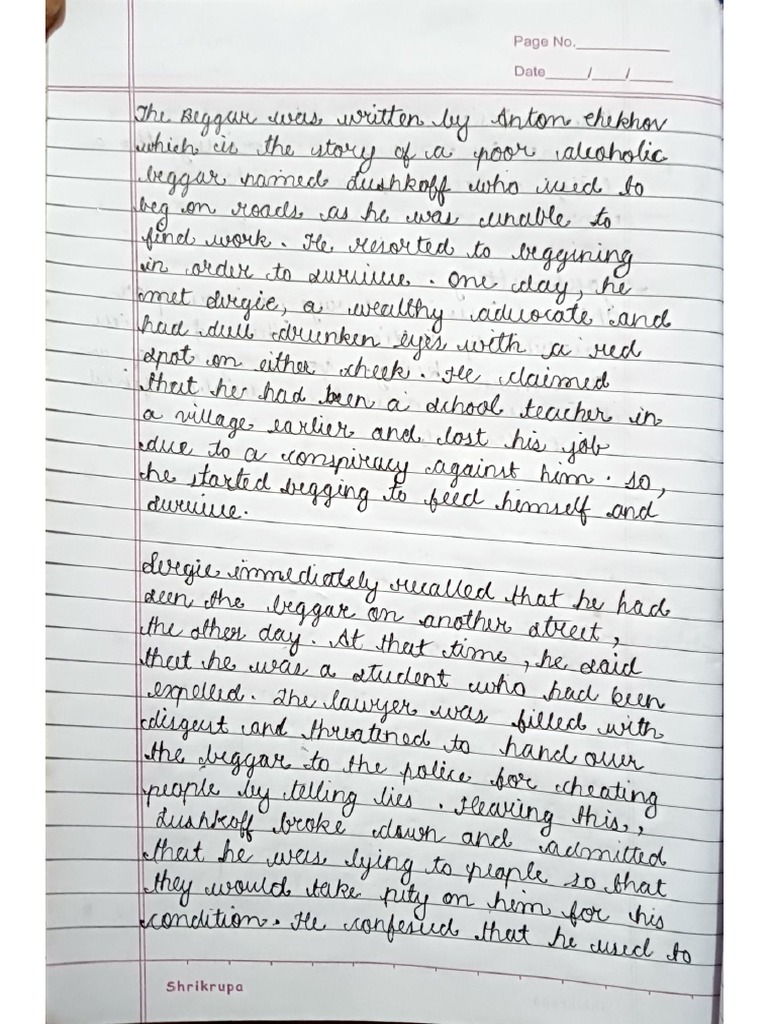 Page No.
Date / /
The Beggar was written by Anton Chekhov
which is the story of a poor alcoholic
beggar named Lushkoff who used to
beg on roads as he was unable to
find work. He resorted to beggining
in order to survive. One day, he
met Sergie, a wealthy advocate and
had dull drunken eyes with a red
spot on either cheek. He claimed
that he had been a school teacher in
a village earlier and lost his job
due to a conspiracy against him. So,
he started begging to feed himself and
survive.
Sergie immediately recalled that he had
seen the beggar on another street,
the other day. At that time, he said
that he was a student who had been
expelled. The lawyer was filled with
disgust and threatined to hand over
the beggar to the police for cheating
people by telling lies. Hearing this,,
Lushkoff broke down and admitted
that he was lying to people so that
they would take pity on him for his
condition. He confesied that he used to
Shrikrupa